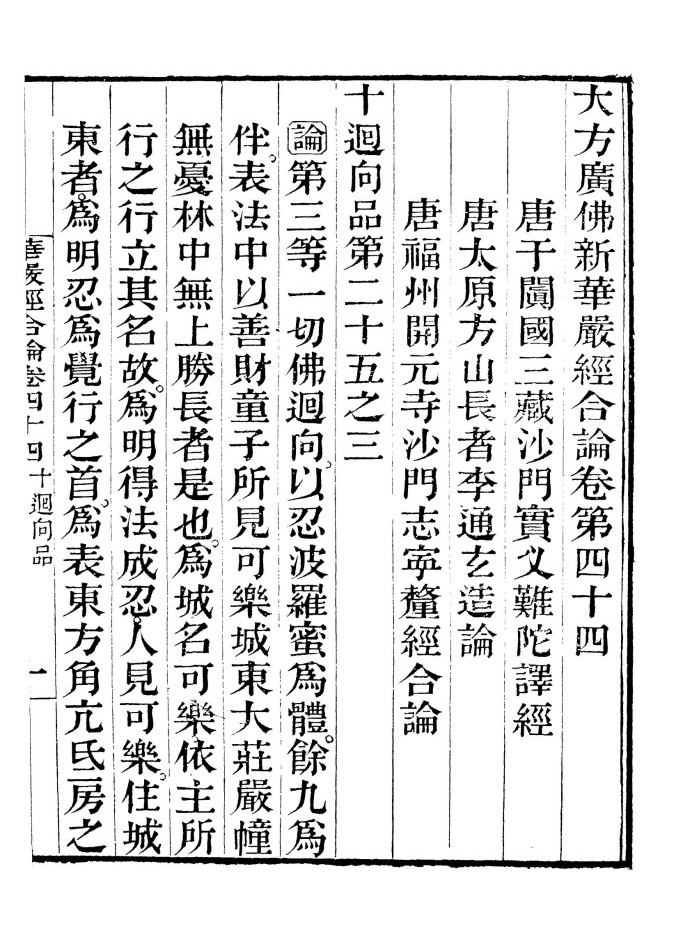 大方廣佛新華嚴經合論卷第四十四
唐于闐國三藏沙門實乂難陀譯經
唐太原方山長者李通玄造論
唐福州開元寺沙門志寧釐經合論
十迴向品第二十五之三
論第三等一切佛迴向。以忍波羅蜜爲體。餘九爲
伴。表法中以善財童子所見可樂城東大莊嚴幢
無憂林中無上勝長者是也。爲城名可樂。依主所
行之行立其名故。爲明得法成忍。人見可樂。住城
東者。爲明忍爲覺行之首。爲表東方角亢氐房之
華嚴經合論卷四十四 十迴向品 一